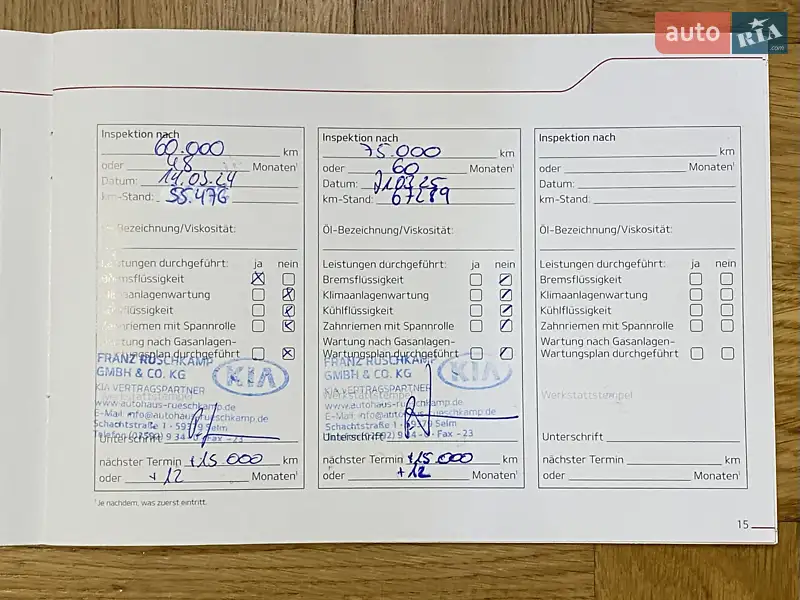 auto RIA .com
Inspektion nach
60.000 km
oder 48 Monaten¹
Datum: 14.03.24
km-Stand: 55.476
-Bezeichnung/Viskosität:
Leistungen durchgeführt: ja nein
Bremsflüssigkeit
Klimaanlagenwartung
Kühlflüssigkeit
Zahnriemen mit Spannrolle
Wartung nach Gasanlagen-
Wartungsplan durchgeführt
FRANZ RÜSCHKAMP
GMBH & CO. KG
KIA
KIA VERTRAGSPARTNER
Werkstattstempel
www.autohaus-rueschkamp.de
E-Mail: info@autohaus-rueschkamp.de
Schachtstraße 1 - 59379 Selm
Unterschrift
nächster Termin +15 000 km
oder +12 Monaten¹
¹ Je nachdem, was zuerst eintritt.
Inspektion nach
75.000 km
oder 60 Monaten¹
Datum:
km-Stand: 67289
Öl-Bezeichnung/Viskosität:
Leistungen durchgeführt: ja nein
Bremsflüssigkeit
Klimaanlagenwartung
Kühlflüssigkeit
Zahnriemen mit Spannrolle
Wartung nach Gasanlagen-
Wartungsplan durchgeführt
FRANZ RÜSCHKAMP
GMBH & CO. KG
KIA
KIA VERTRAGSPARTNER
Werkstattstempel
www.autohaus-rueschkamp.de
E-Mail: info@autohaus-rueschkamp.de
Schachtstraße 1 - 59379 Selm
Unterschrift
nächster Termin +15 000 km
oder +12 Monaten¹
Inspektion nach
km
oder Monaten¹
Datum:
km-Stand:
Öl-Bezeichnung/Viskosität:
Leistungen durchgeführt: ja nein
Bremsflüssigkeit
Klimaanlagenwartung
Kühlflüssigkeit
Zahnriemen mit Spannrolle
Wartung nach Gasanlagen-
Wartungsplan durchgeführt
Werkstattstempel
Unterschrift
nächster Termin km
oder Monaten¹
15